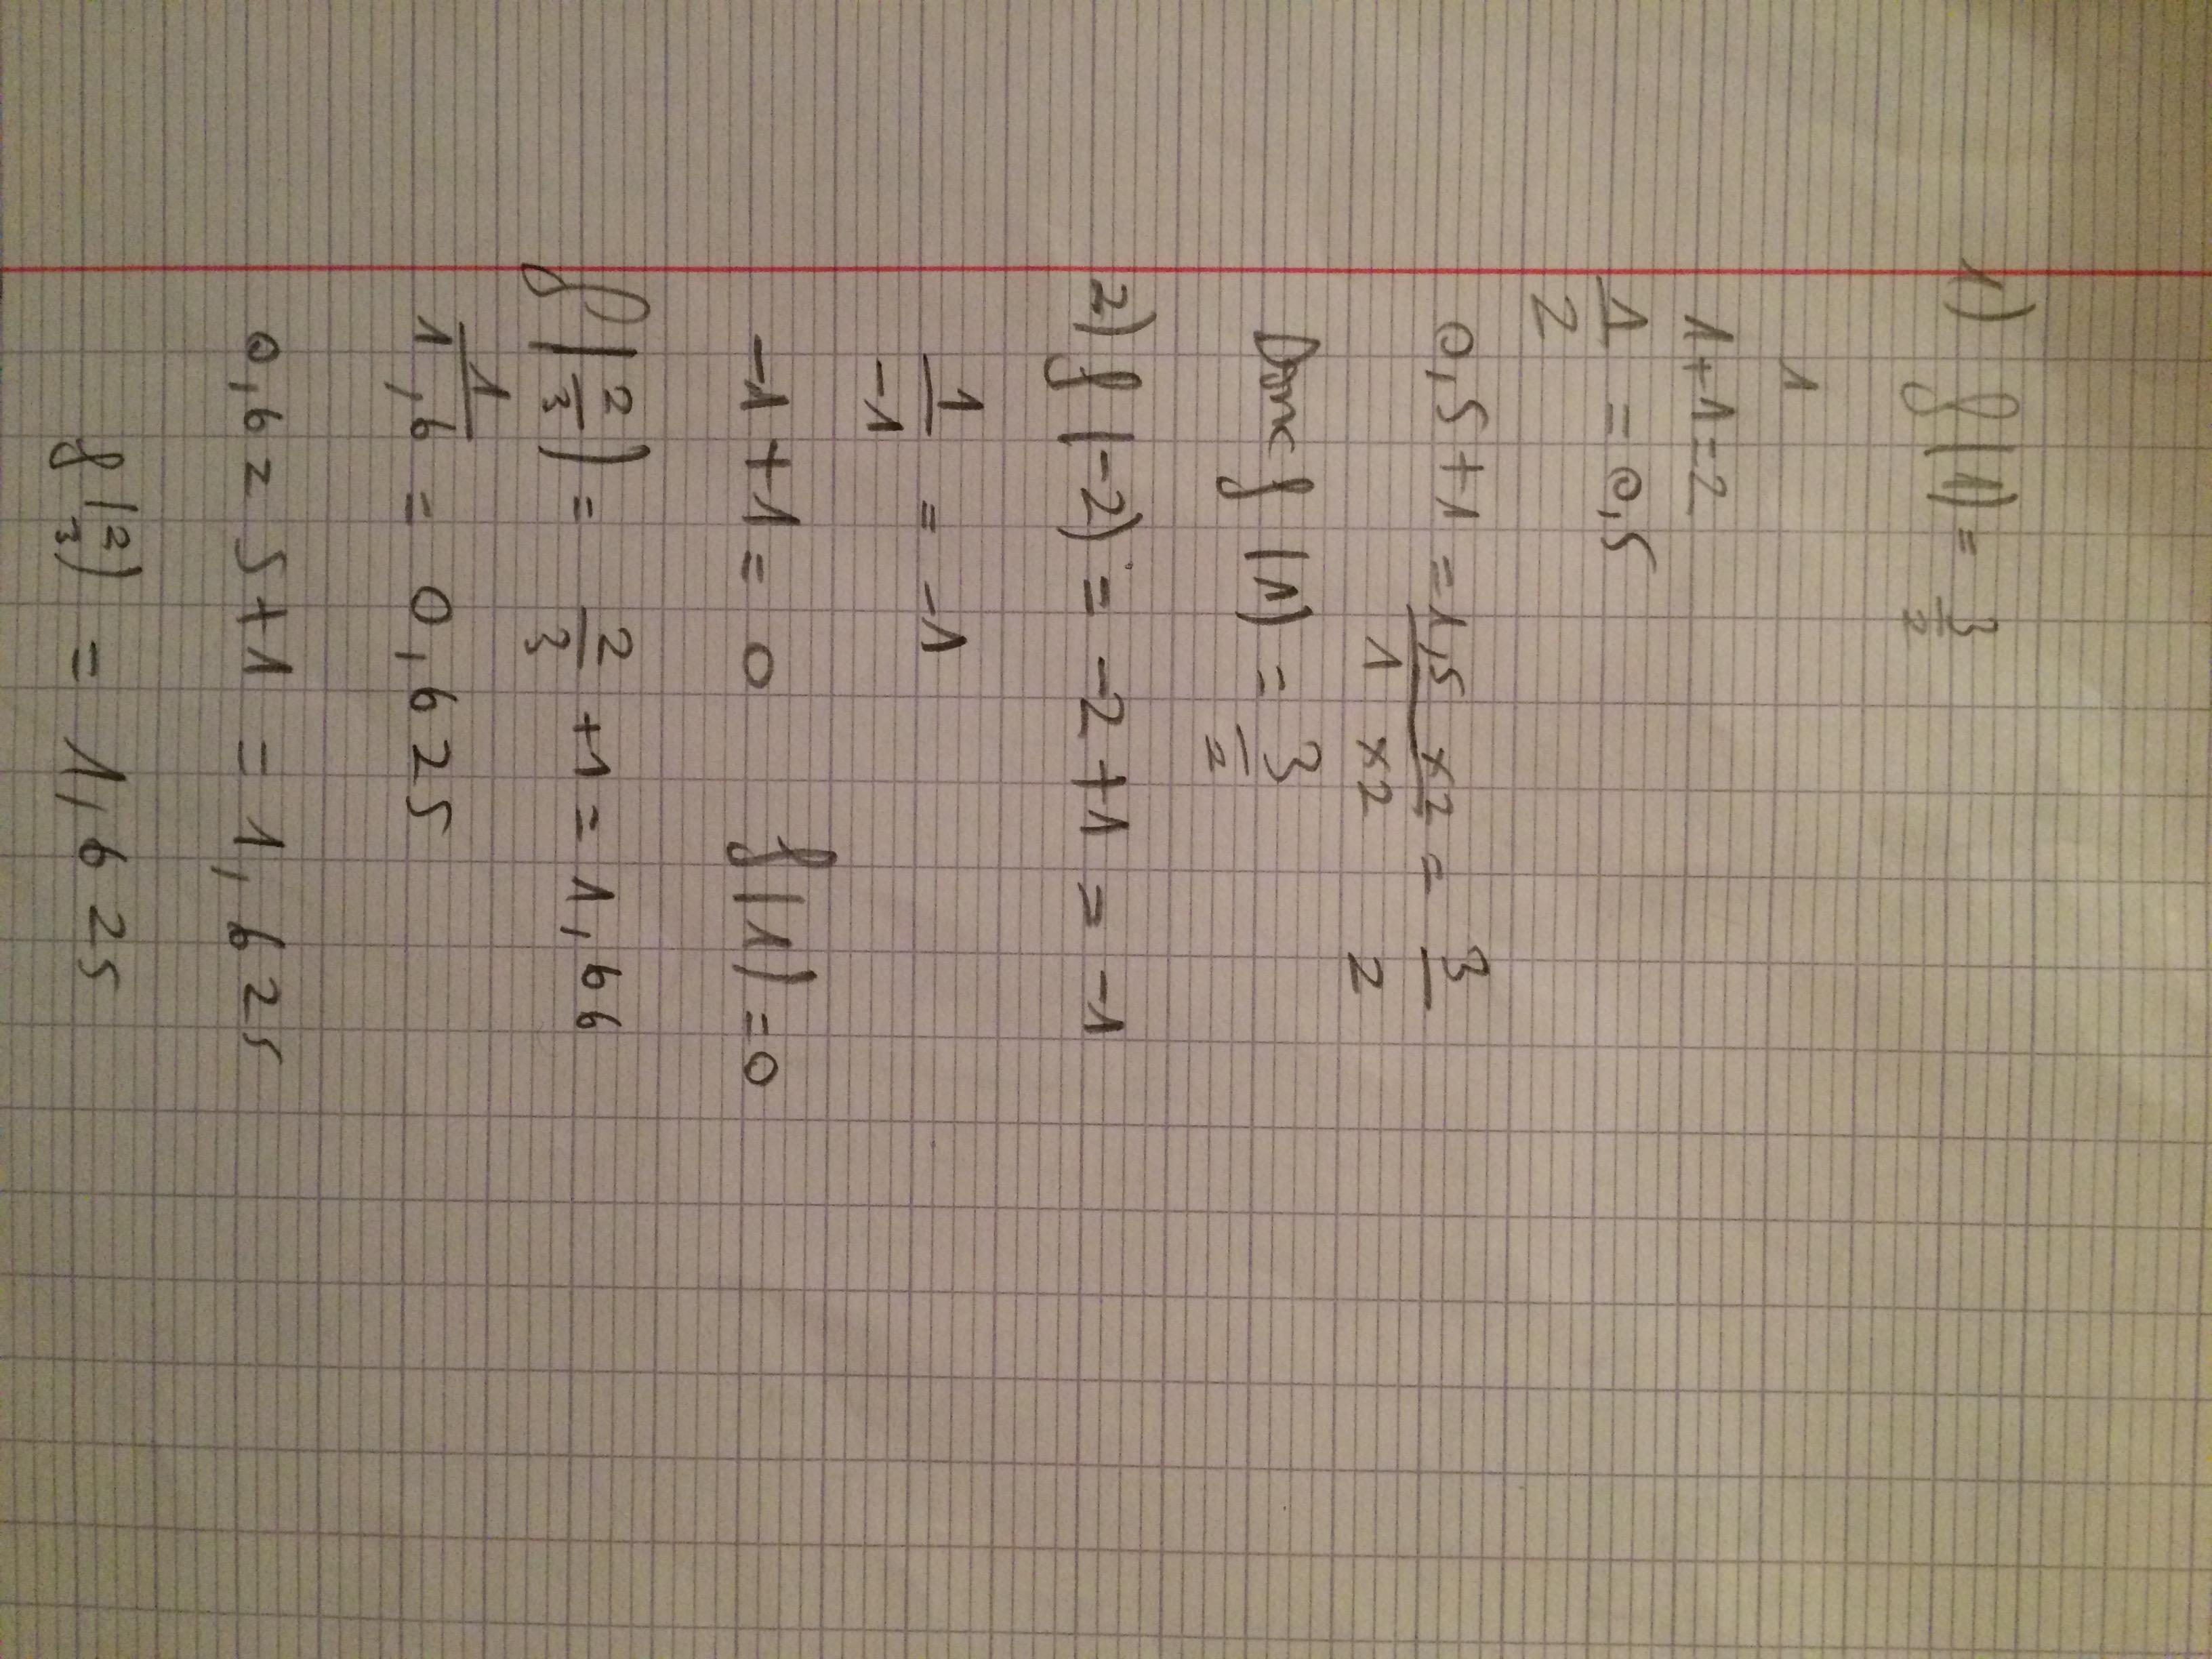 1) f(1) = 3/2
1
1+1=2
1/2 = 0,5
0,5+1 = 1,5/1 ×2/×2 = 3/2
Donc f(1) = 3/2
2) f(-2) = -2+1 = -1
1/-1 = -1
-1+1 = 0 f(1) = 0
f(2/3) = 2/3 +1 = 1,66
1/1,6 = 0,625
0,625+1 = 1,625
f(2/3) = 1,625